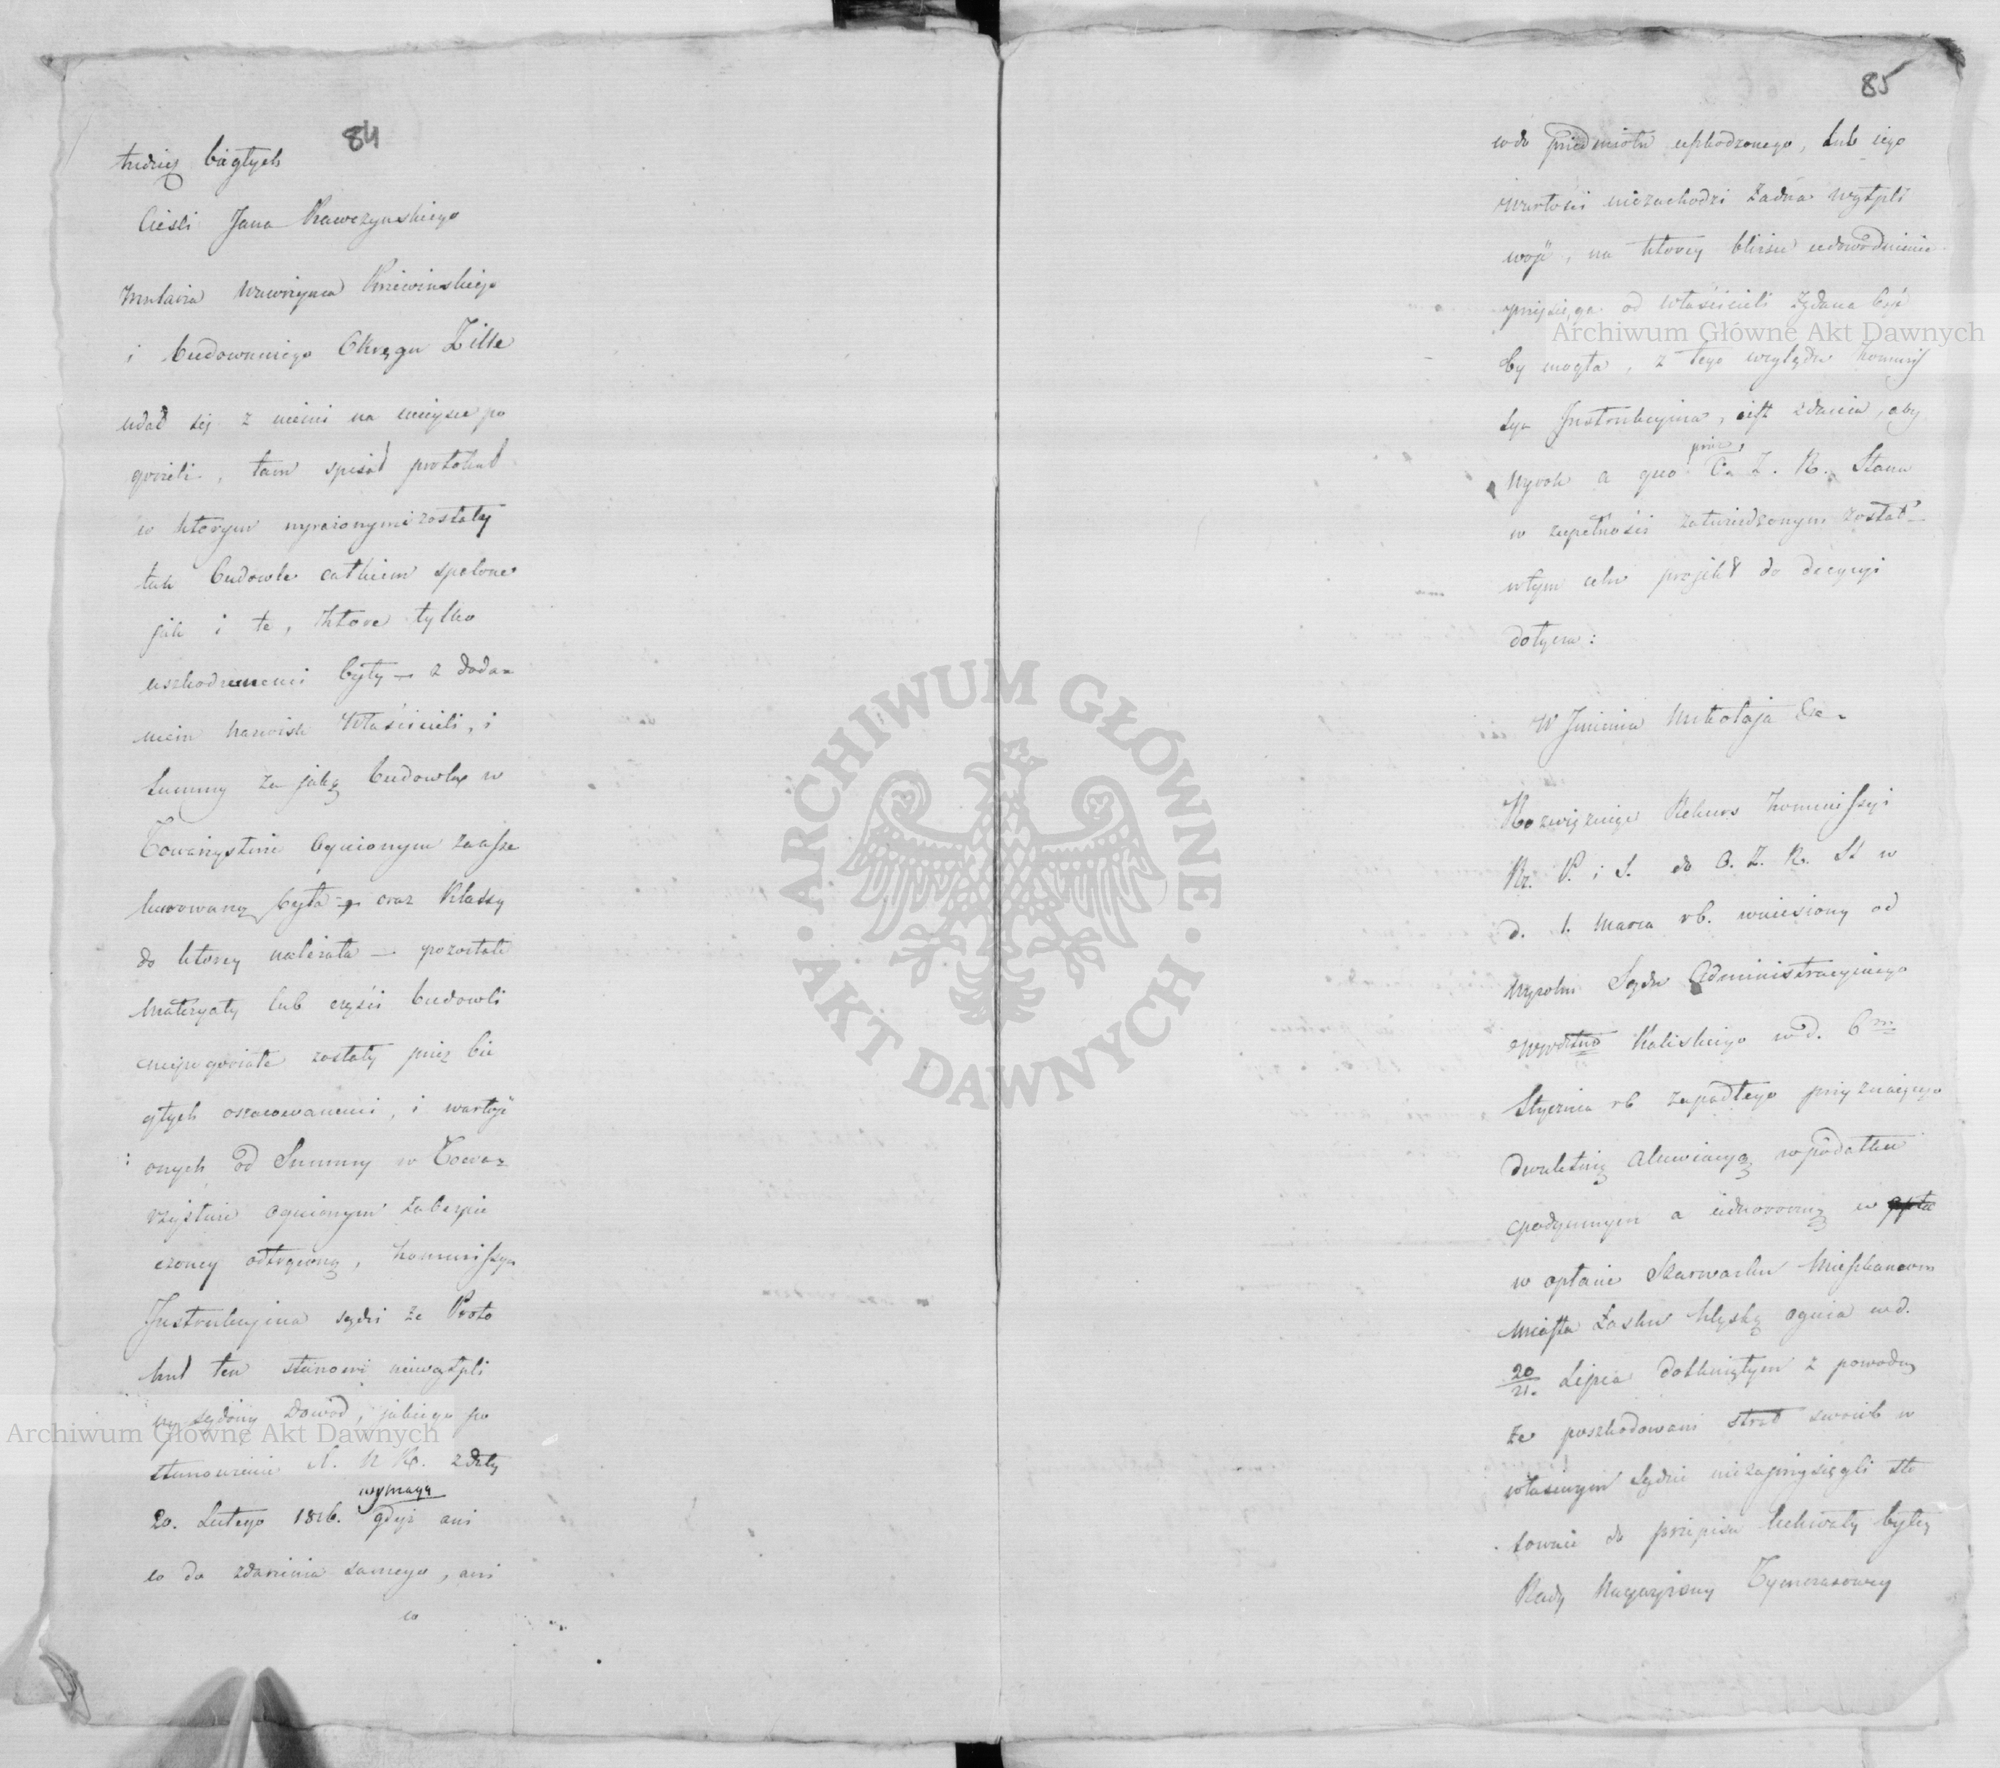 84
tudzież biegłych
Cieśli Jana Krawczynskiego
Mularza Wawrzyńca
i budowniczego Okręgu Zille
udał się z niemi na mieysce po
gorzeli, tam spisał protokuł
w którym wyrażonymi zostały
tak budowle całkiem spalone
jak i te, które tylko
uszkodzonemi były — z doda=
niem nazwisk Właścicieli, i
Summy za jaką budowla w
Towarzystwie Ogniowym zaasse
kurowaną była — oraz Klassy
do ktorey należała — pozostałe
Materyały lub części budowli
niepogorzałe zostały przez bie
głych oszacowanemi, i wartość
onych od Summy w Towa=
rzystwie Ogniowym zabezpie
czoney odtrąconą, Kommissya
Instrukcyina sądzi że Proto
kuł ten stanowi niewątpli
wy sądowy Dowód, jakiego po
stanowienie N. K. z daty
20. Lutego 1816. wymaga gdyż ani
co do zdarzenia samego, ani
co
85
co do przedmiotu uszkodzonego, lub iego
wartości niezachodzi żadna wątpli
wość, na ktorey bliższe udowodnienie
przysięga od właścicieli żądana być
by mogła, z tego względu Kommis
sya Instrukcyina, iest zdania, aby
Wyrok a quo przez O. Z. R. Stanu
w zupełności zatwierdzonym został —
w tym celu projekt do decyzyi
dołącza:
W Imieniu Mikołaja &c.
Rozwiązuiąc Rekurs Kommissyi
Rz. P. i S. do O. Z. R. St w
d. 1. Marca rb. wniesiony od
Wyroku Sądu Administracyinego
Wwodztwa Kaliskiego w d. 6
Stycznia rb zapadłego przyznaiącego
dwuletnią alewiacyą w podatku
podymnym a iednoroczną w
w opłacie Szarwarku Mieszkańcom
Miasta Łasku klęską ognia w d.
20/21. Lipca dotkniętym z powodu
że poszkodowani strat swoich w
właściwym Sądzie niezaprzysięgli sto
sownie do przepisu Uchwały byłey
Rady Naywyższey Tymczasowey
ARCHIWUM GŁÓWNE · AKT DAWNYCH ·
Archiwum Główne Akt Dawnych
Archiwum Główne Akt Dawnych